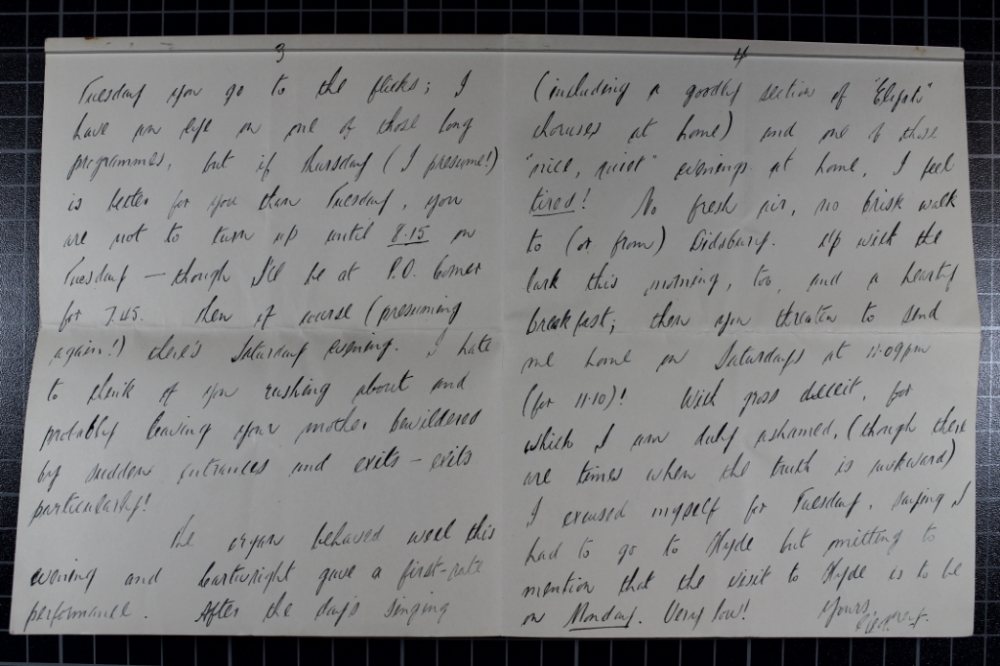 3
Tuesday you go to the flicks; I
have an eye on one of those long
programmes, but if Thursday (I presume!)
is better for you than Tuesday, you
are not to turn up until 8.15 on
Tuesday — though I'll be at P.O. Corner
for 7.45. Then of course (presuming
again!) there's Saturday evening. I hate
to think of you rushing about and
probably leaving your mother bewildered
by sudden entrances and exits – exits
particularly!
The organ behaved well this
evening and Cartwright gave a first-rate
performance. After the day's singing
4
(including a goodly section of "Elijah"
choruses at home) and one of those
"nice, quiet" evenings at home, I feel
tired! No fresh air, no brisk walk
to (or from) Didsbury. Up with the
lark this morning, too, and a hearty
breakfast; then you threaten to send
me home on Saturdays at 11.09pm
(for 11.10)! With gross deceit, for
which I am duly ashamed, (though there
are times when the truth is awkward)
I excused myself for Tuesday, saying I
had to go to Hyde but omitting to
mention that the visit to Hyde is to be
on Monday. Very low!
Yours,